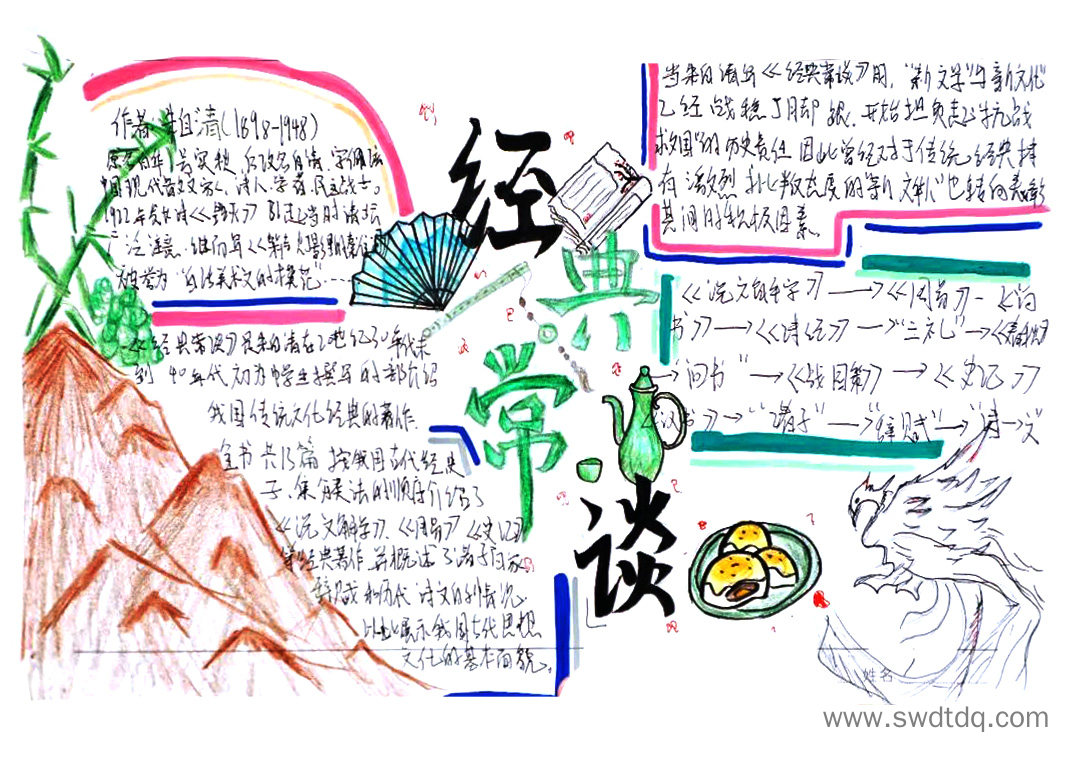 经典常谈
作者:朱自清(1898-1948)
原名自华 号实秋 后改名自清,字佩弦
中国现代散文家、诗人、学者、民主战士。
泛注意.继而写
被誉为“白话美术文的模范”……
《经典常谈》是朱自清在
到 40年代初为中学生撰写的 部介绍
我国传统文化经典的著作.
全书共13篇 按我国古代经史
子、集 的顺序介绍了
《说文解字》、《周易》《史记》
等经典著作 并概述了诸子百家
辞赋和历代 诗文的 情况.
以此展示我国古代思想
文化的基本面貌。
当朱自清写《经典常谈》时,“新文学”与新文化
已经战稳了脚跟.开始担负起抗战
救国的历史责任 因此曾经对于传统经典持
有激烈 批判态度的“新文化”也转向
其间的积极因素
《说文解字》→《周易》-《尚
书》→《诗经》→“三礼”→《春秋
→ 《战国策》→《史记》
汉书》→“诸子”→“辞赋”→“诗→文
姓名
www.swdtdq.com